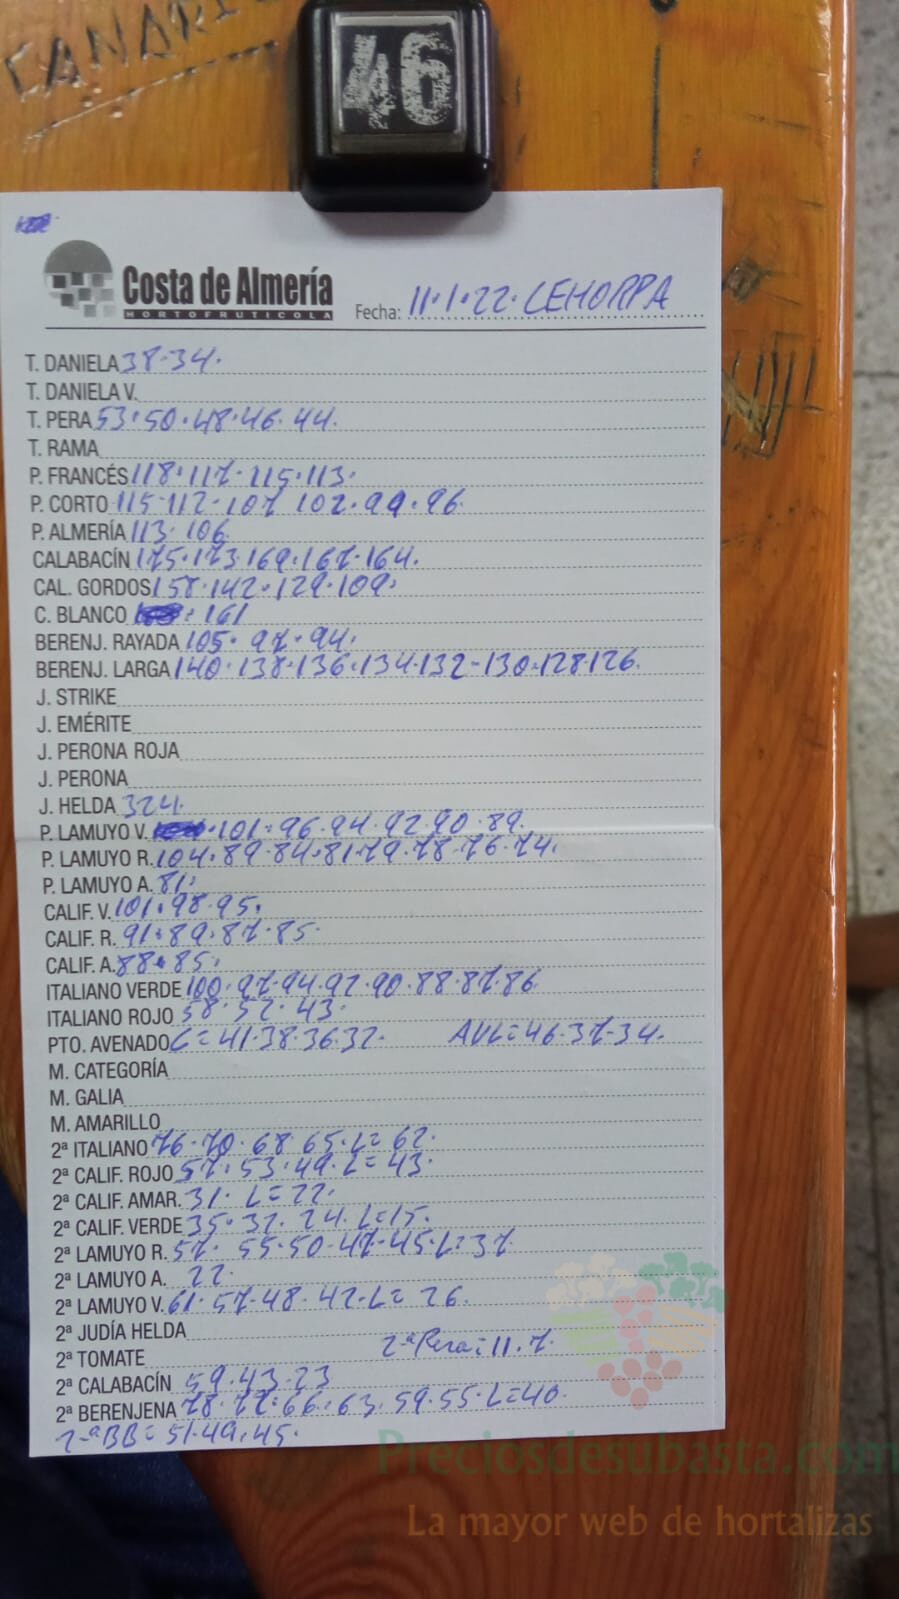 CANARI
46
Costa de Almería
HORTOFRUTICOLA
Fecha: 11·1·22· CEHORPA
T. DANIELA 38·34·
T. DANIELA V.
T. PERA 53·50·48·46·44·
T. RAMA
P. FRANCÉS 118·117·115·113·
P. CORTO 115·112·107 102·99·96
P. ALMERÍA 113· 106
CALABACÍN 175·173·169·167·164·
CAL. GORDOS 158·142·129·109·
C. BLANCO : 161
BERENJ. RAYADA 105· 97·94·
BERENJ. LARGA 140·138·136·134·132-130·128·126·
J. STRIKE
J. EMÉRITE
J. PERONA ROJA
J. PERONA
J. HELDA 324·
P. LAMUYO V. ·101·96·94·92·90·89·
P. LAMUYO R. 104·89·84·81·79·78·76·74·
P. LAMUYO A. 81·
CALIF. V. 101·98·95·
CALIF. R. 91·89·87·85·
CALIF. A. 88·85·
ITALIANO VERDE 100·97·94·92·90·88·87·86
ITALIANO ROJO 58·52·43·
PTO. AVENADO C=41·38·36·32· AVL=46·37·34·
M. CATEGORÍA
M. GALIA
M. AMARILLO
2ª ITALIANO 76·70·68·65·L=62·
2ª CALIF. ROJO 57·53·49·L=43·
2ª CALIF. AMAR. 31· L=22·
2ª CALIF. VERDE 35·32·24·L=15·
2ª LAMUYO R. 57· 55·50·47·45·L=37
2ª LAMUYO A. 22·
2ª LAMUYO V. 61·57·48·42·L=26·
2ª JUDÍA HELDA
2ª TOMATE 2ªPera=11·7·
2ª CALABACÍN 59·43·23
2ª BERENJENA 78·72·66·63·59·55·L=40·
2ªBB=51·49·45·
Preciosdesubasta.com
La mayor web de hortalizas